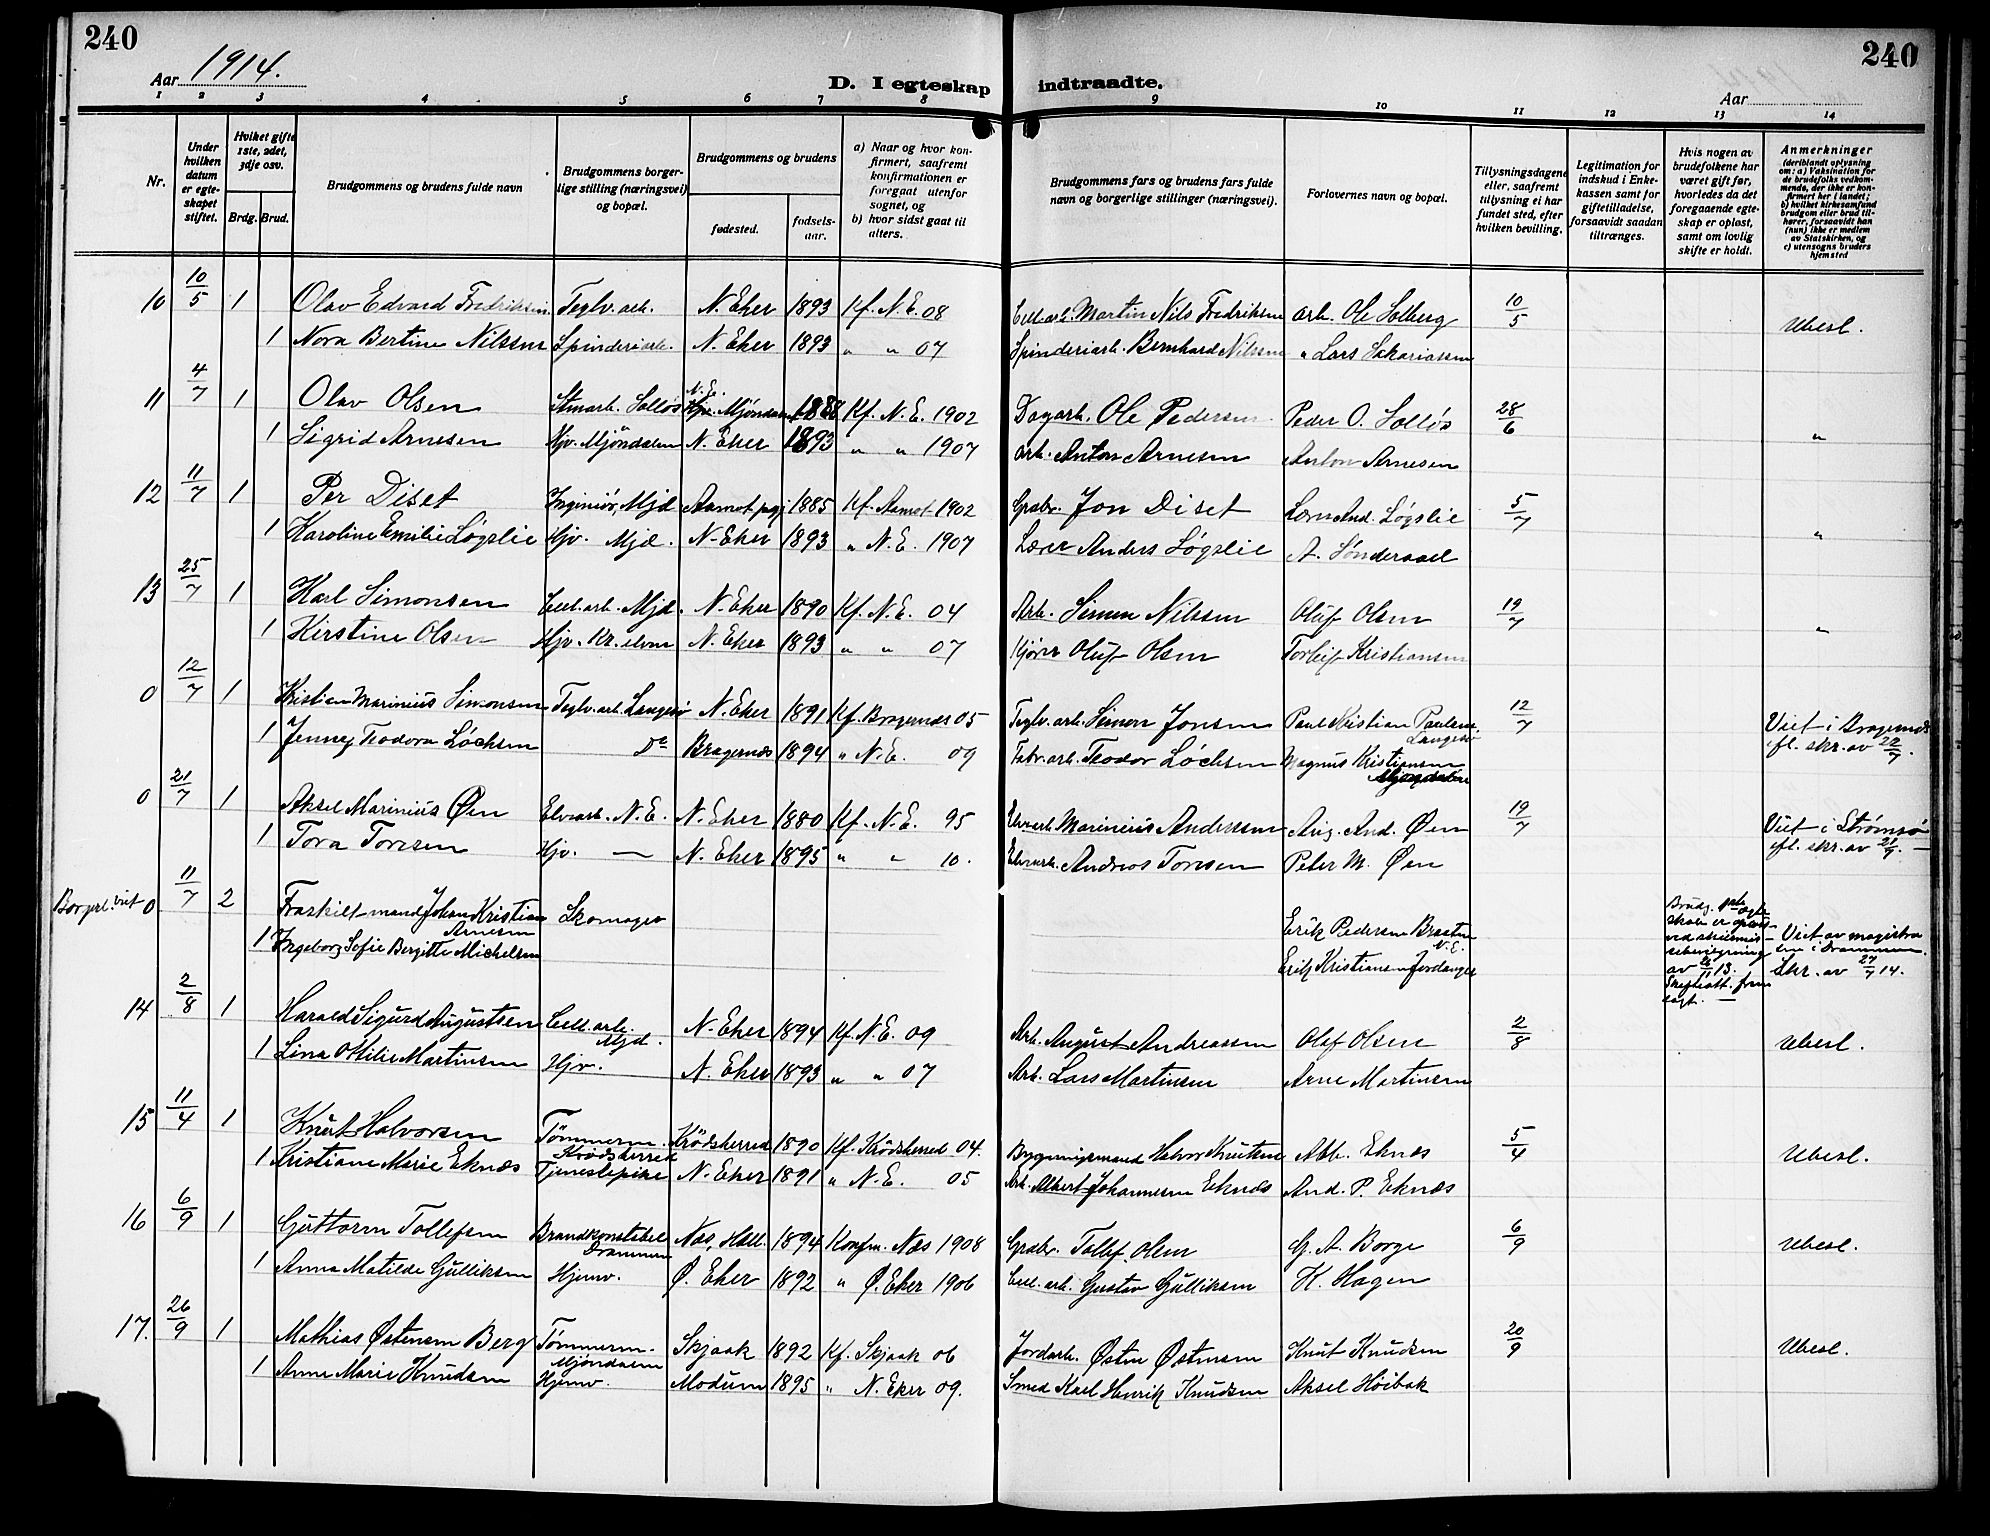 240
240
Aar 1914.
D. I egteskap indtraadte.
Aar
1 2 3 4 5 6 7 8 9 10 11 12 13 14
Nr.
Under hvilken datum er egteskapet stiftet.
Hvilket gifte 1ste, 2det, 3dje osv.
Brdg. Brud.
Brudgommens og brudens fulde navn
Brudgommens borgerlige stilling (næringsvei) og bopæl.
Brudgommens og brudens
fødested.
fødselsaar.
a) Naar og hvor konfirmert, saafremt konfirmationen er foregaat utenfor sognet, og
b) hvor sidst gaat til alters.
Brudgommens fars og brudens fars fulde navn og borgerlige stillinger (næringsvei).
Forlovernes navn og bopæl.
Tillysningsdagene eller, saafremt tillysning ei har fundet sted, efter hvilken bevilling.
Legitimation for indskud i Enkekassen samt for giftetilladelse, forsaavidt saadan tiltrænges.
Hvis nogen av brudefolkene har været gift før, hvorledes da det foregaaende egteskap er opløst, samt om lovlig skifte er holdt.
Anmerkninger (deriblandt oplysning om: a) Vaksination for de brudefolks vedkommende, der ikke er konfirmert her i landet; b) hvilket kirkesamfund brudgom eller brud tilhører, forsaavidt han (hun) ikke er medlem av Statskirken, og c) utensogns bruders hjemsted
10 10/5 1 Olav Edvard Fredriksen Teglv. arb. N. Eker 1893 Kf. N. E. 08 Cell.arb. Martin Nils Fredriksen Arb. Ole Solberg 10/5 Ubesl.
1 Nora Bertine Nilssen Spinderiarb. N. Eker 1893 " " 07 Spinderiarb. Bernhard Nilssen " Lars Sakariassen
11 4/7 1 Olav Olsen Stenarb. Solløs N. E. Mjöndalen 1888 Kf. N. E. 1902 Dagarb. Ole Pedersen Peder O. Solløs 28/6 "
1 Sigrid Arnesen Hjv. Mjöndalen N. Eker 1893 " " 1907 Arb. Anton Arnesen Anton Arnesen
12 11/7 1 Per Diset Ingeniør, Mjd Aamot pgj 1885 Kf. Aamot 1902 Grdbr. Jon Diset Lærer And. Løgslie 5/7 "
1 Karoline Emilie Løgslie Hjv. Mjd. N. Eker 1893 " N. E. 1907 Lærer Anders Løgslie A. Sønderaael
13 25/7 1 Karl Simonsen Cell.arb. Mjd. N. Eker 1890 Kf. N. E. 04 Arb. Simen Nilssen Oluf Olsen 19/7 "
1 Kirstine Olsen Hjv. Kr. elven N. Eker 1893 " " 07 Kjörer Oluf Olsen Torleif Kristiansen
0 12/7 1 Kristian Marinius Simonsen Teglv. arb. Langesø N. Eker 1891 Kf. Bragernæs 05 Teglv. arb. Simen Jonsen Paul Kristian Paulsen Langesø 12/7 Viet i Bragernæs fl. skr. av 22/7.
1 Jenny Teodora Löchsen Do Bragernæs 1894 " N. E. 09 Fabr. arb. Teodor Löchsen Magnus Kristiansen Mjøndalen
0 21/7 1 Aksel Marinius Øen Elvearb. N. E. N. Eker 1880 Kf. N. E. 95 Elvearb. Marinius Anderssen Aug. And. Øen 19/7 Viet i Strømsø fl. skr. av 21/7. —
1 Tora Toresen Hjv. — N. Eker 1895 " " 10. Elvearb. Andreas Toresen Peter M. Øen
Borgerl. viet 0 11/7 2 Fraskilt mand Johan Kristian Arnesen Skomager Erik Pedersen Braaten N. E. Viet av magistraten i Drammen. Skr. av 27/7 14.
1 Ingeborg Sofie Bergitte Michelsen Erik Kristiansen Jordanger
14 2/8 1 Harald Sigurd Augustsen Cell. arb. Mjd. N. Eker 1894 Kf. N. E. 09 Arb. August Andreassen Olaf Olsen 2/8 Ubesl.
1 Lina Otilie Martinsen Hjv. N. Eker 1893 " " 07 Arb. Lars Martinsen Arne Martinsen
15 11/4 1 Knut Halvorsen Tømmerm. Krödsherred Krödsherred 1890 Kf. Krödsherred 04. Bygningsmand Halvor Knutsen Alb. Eknæs 5/4 Ubesl.
1 Kristiane Marie Eknæs Tjenestepike N. Eker 1891 " N. E. 05 Arb. Albert Johannesen Eknæs And. P. Eknæs
16 6/9 1 Guttorm Tollefsen Brandkonstabel Drammen Næs, Hall. 1894 Konfm. Næs 1908 Grdbr. Tollef Olsen G. A. Borge 6/9 Ubesl.
1 Anna Matilde Gulliksen Hjemv. Ø. Eker 1892 " Ø. Eker 1906 Cell. arb. Gustav Gulliksen K. Hagen
17. 26/9 1 Mathias Østensen Berg Tømmerm. Mjøndalen Skjaak 1892 Kf. Skjaak 06 Jordarb. Østen Østensen Knut Knudsen 20/9 Ubesl.
1 Anne Marie Knudsen Hjemv. Modum 1895 " N. Eker 09. Smed Karl Henrik Knudsen Aksel Höibak